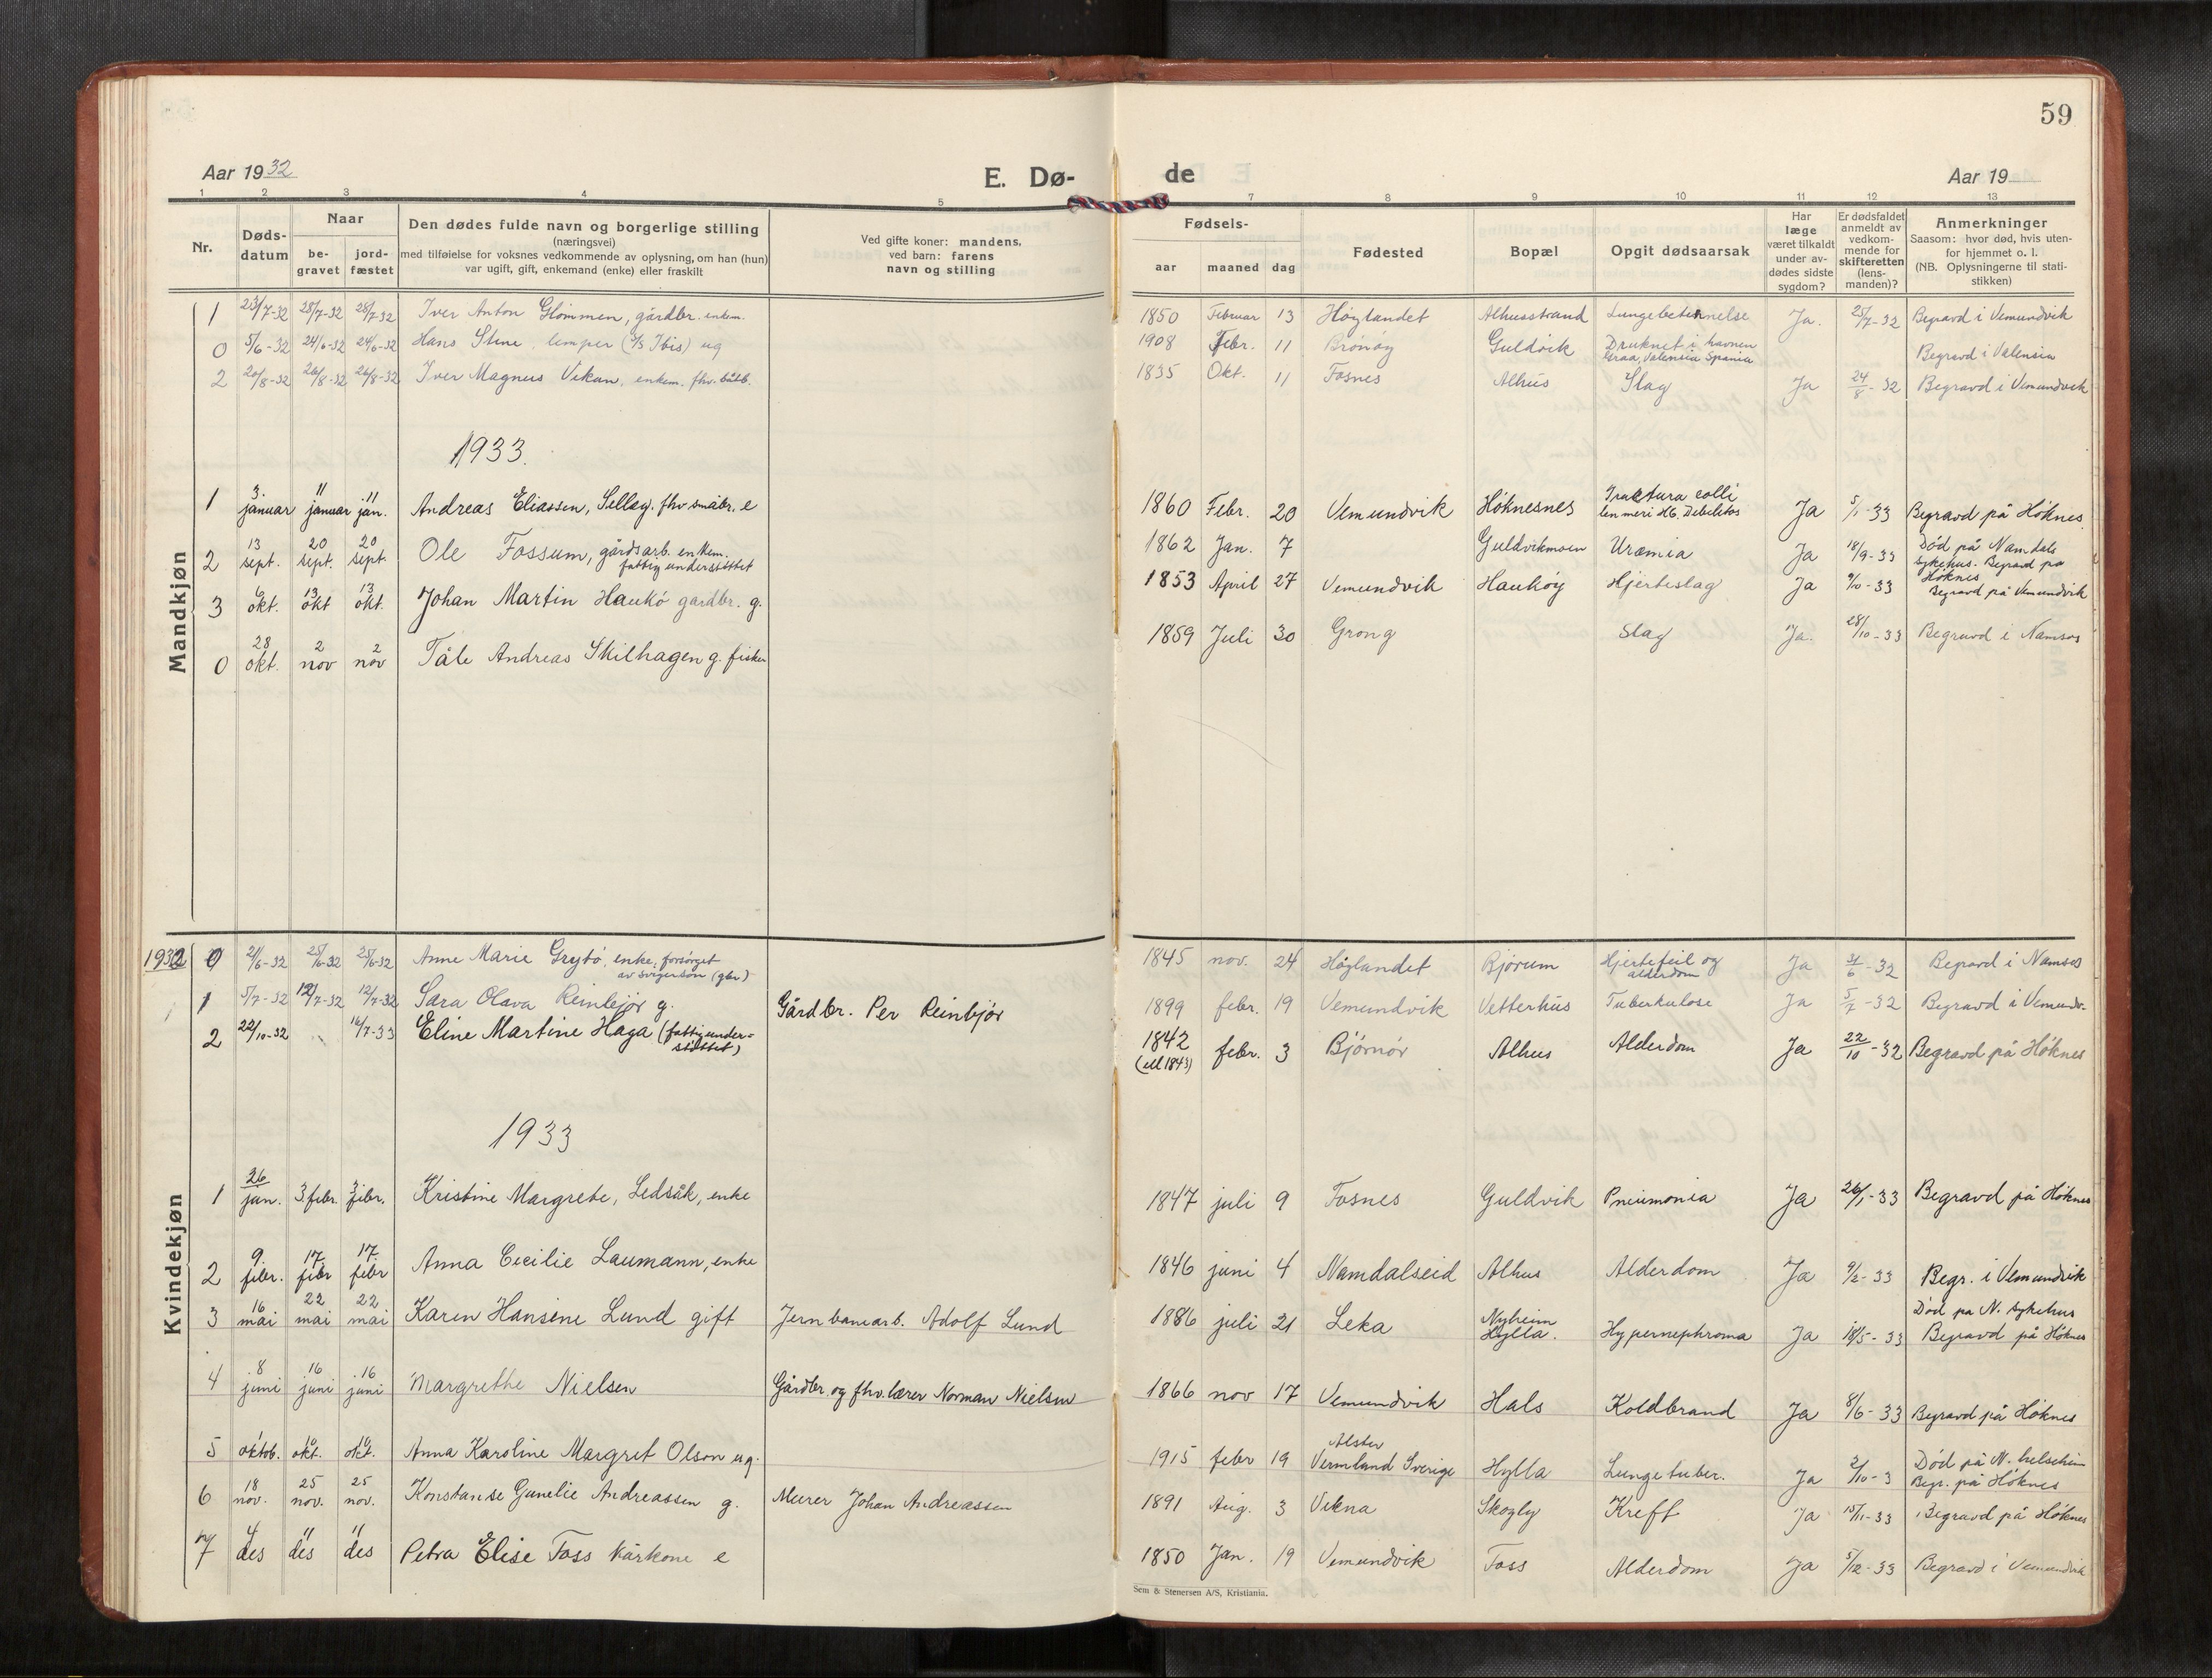 59
Aar 1932
E. Dø-
de
Aar 19
1 2 3 4 5 7 8 9 10 11 12 13
Nr.
Døds-
datum
Naar
be-
gravet
jord-
fæstet
Den dødes fulde navn og borgerlige stilling
(næringsvei)
med tilføielse for voksnes vedkommende av oplysning, om han (hun)
var ugift, gift, enkemand (enke) eller fraskilt
Ved gifte koner: mandens,
ved barn: farens
navn og stilling
Fødsels-
aar maaned dag
Fødested
Bopæl
Opgit dødsaarsak
Har
læge
været tilkaldt
under av-
dødes sidste
sygdom?
Er dødsfaldet
anmeldt av
vedkom-
mende for
skifteretten
(lens-
manden)?
Anmerkninger
Saasom: hvor død, hvis uten-
for hjemmet o. l.
(NB. Oplysningerne til stati-
stikken)
Mandkjøn
1 23/7-32 28/7-32 28/7-32 Iver Anton Glømmen, gårdbr. enkem. 1850 Februar 13 Høglandet Alhusstrand Lungebetennelse Ja. 25/7-32 Begravd i Vemundvik
0 5/6-32 24/6-32 24/6-32 Hans Stene, lemper (S/S Ibis) ug 1908 Febr. 11 Brønøy Guldvik Druknet i havnen
Graa, Valensia Spania Begravd i Valensia
2 20/8-32 26/8-32 26/8-32 Iver Magnus Vikan, enkem. fhv. båtb. 1835 Okt. 11 Fosnes Alhus Slag Ja 24/8-32 Begravd i Vemundvik
1933.
1 3. januar 11 januar 11 jan. Andreas Eliassen, Sellæg. fhv småbr. e 1860 Febr. 20 Vemundvik Høknesnes Fractura colli
Ja 5/1-33 Begravd på Høknes
2 13 sept. 20 sept. 20 sept. Ole Fossum, gårdsarb. enkem.
fattigunderstøttet 1862 Jan. 7 Guldvikmoen Uræmia Ja 18/9-33 Død på Namdals
sykehus. Begravd på
Høknes
3 6 okt. 13 okt 13 okt. Johan Martin Haukø gardbr. g. 1853 April 27 Vemundvik Haukøy Hjerteslag Ja 9/10-33 Begravd på Vemundvik
0 28 okt. 2 nov 2 nov Tåle Andreas Skilhagen g. fisker 1859 Juli 30 Grong Slag Ja. 28/10-33 Begravd i Namsos
Kvindekjøn
1932 0 21/6-32 25/6-32 25/6-32 Anne Marie Grytø, enke, forsørget
av svigersøn (gbr) 1845 nov. 24 Høglandet Bjørum Hjertefeil og
alderdom Ja 21/6-32 Begravd i Namsos
1 5/7-32 12/7-32 12/7-32 Sara Olava Reinbjør g. Gårdbr. Per Reinbjør 1899 febr. 19 Vemundvik Vetterhus Tuberkulose Ja 5/7-32 Begravd i Vemundv.
2 22/10-32 16/7-33 Eline Martine Haga (fattigunder-
støttet) 1842
(ell 1843) febr. 3 Bjørnør Alhus Alderdom Ja 22/10-32 Begravd på Høknes
1933
1 26 jan. 3 febr. 3 febr. Kristine Margrete, Ledsåk, enke 1847 juli 9 Fosnes Guldvik Pneumonia Ja 26/1-33 Begravd på Høknes
2 9. febr. 17 febr 17. febr Anna Cecilie Laumann, enke 1846 juni 4 Namdalseid Alhus Alderdom Ja 9/2-33 Begr. i Vemundvik
3 16 mai 22 mai 22 mai Karen Hansine Lund gift Jernbanearb. Adolf Lund 1886 juli 21 Leka Nyheim
Hylla. Hypernephroma Ja 18/5-33 Død på N. sykehus
Begravd på Høknes
4 8 juni 16 juni 16 juni Margrethe Nielsen Gårdbr. og fhv. lærer Norman Nielsen 1866 nov 17 Vemundvik Hals Koldbrand Ja 8/6-33 Begravd på Høknes
5 1 oktob. 10 okt. 10 okt. Anna Karoline Margret Olson ug. 1915 febr 19 Alster
Vermland Sverige Hylla Lungetuber. Ja 2/10-3 Død på N. helseheim
Begr. på Høknes
6 18 nov. 25 nov. 25 nov. Konstanse Gunelie Andreassen g. Murer Johan Andreassen 1891 Aug. 3 Vikna Skogly Kreft Ja 18/11-33 Begravd på Høknes
7 4 des 11 des 11 des Petra Elise Foss kårkone e 1850 Jan. 19 Vemundvik Foss Alderdom Ja 5/12-33 Begravd i Vemundvik
Sem & Stenersen A/S, Kristiania.